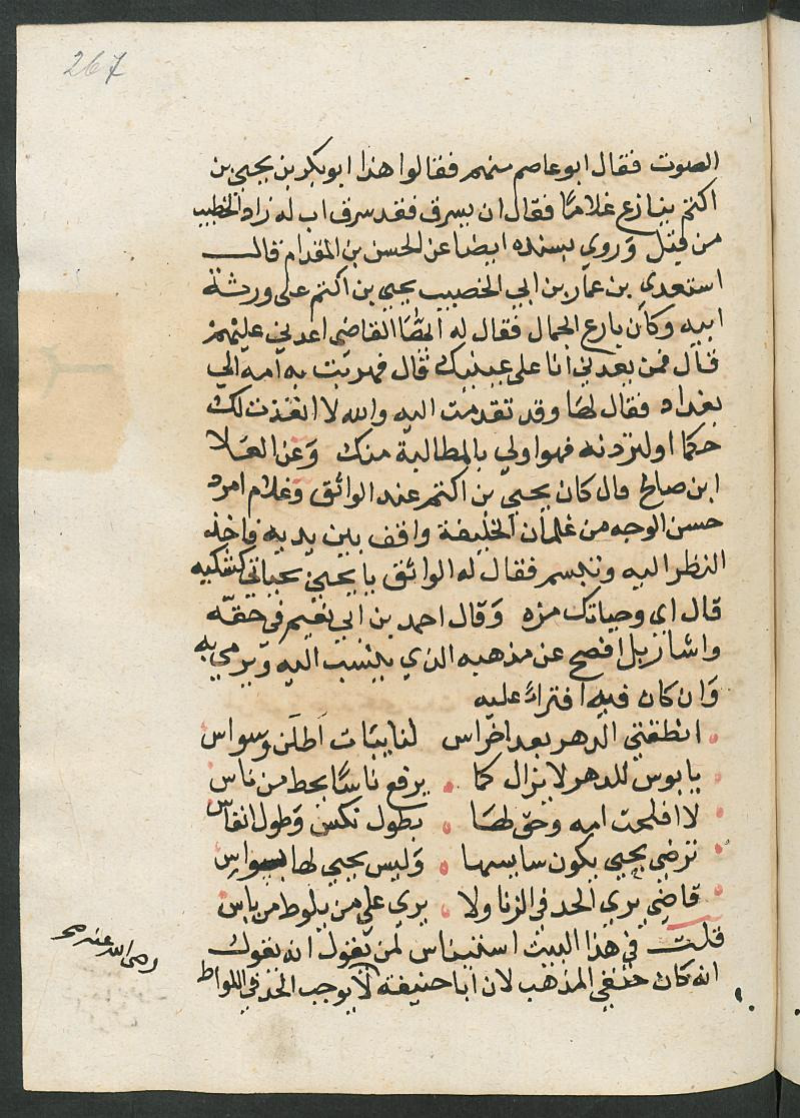 267
الصوت فقال ابو عاصم منهم فقالوا هذا ابو بكر بن يحيى بن
اكثم ينازع غلامًا فقال ان يسرق فقد سرق اب له زاد الخطيب
من قبل وروي بسنده ايضا عن الحسن بن المقدام قال
استعدي بن عمار بن ابي الخصيب يحيى بن اكثم على ورثة
ابيه وكان بارع الجمال فقال له ايها القاضي اعدني عليهم
قال فمن يعدني انا على عينيك قال فهربت به امه الى
بغداد فقال لها وقد تقدمت اليه والله لا انفذت لك
حكما او لتردنه فهو اولي بالمطالبة منك وعن العلا
ابن صالح قال كان يحيى بن اكثم عند الواثق وغلام امرد
حسن الوجه من غلمان الخليفة واقف بين يديه فاخذ
النظر اليه وتبسم فقال له الواثق يا يحيى بحياتي
قال اي وحياتك مره وقال احمد بن ابي نعيم في حقه
واشار بل افصح عن مذهبه الذي ينسب اليه ويرمي به
وان كان فيه افتراءً عليه
انطقني الدهر بعد اخراس لنايبات اطلن وسواس
يا بوس للدهر لا يزال كما يرفع ناسًا يحط من ناس
لا افلحت امه وحق لها بطول نكس وطول اتعاس
ترضي بيحيى يكون سايسها وليس يحيى لها بسواس
قاضي يري الحد في الزنا ولا يري على من يلوط من باس
قلت في هذا البيت استيناس لمن يقول انه يقول
رضي الله عنه
انه كان حنفي المذهب لان ابا حنيفة لا يوجب الحد في اللواط